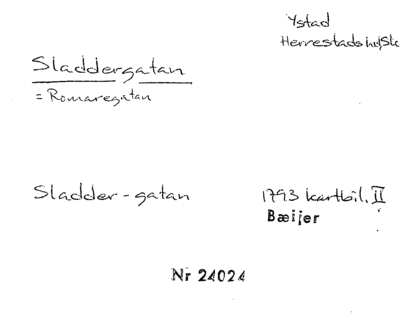 Ystad
Herrestads hd, Sk
Sladdergatan
= Romaregatan
Sladder-gatan
1793 kartbil. II
Bæijer
Nr 24024